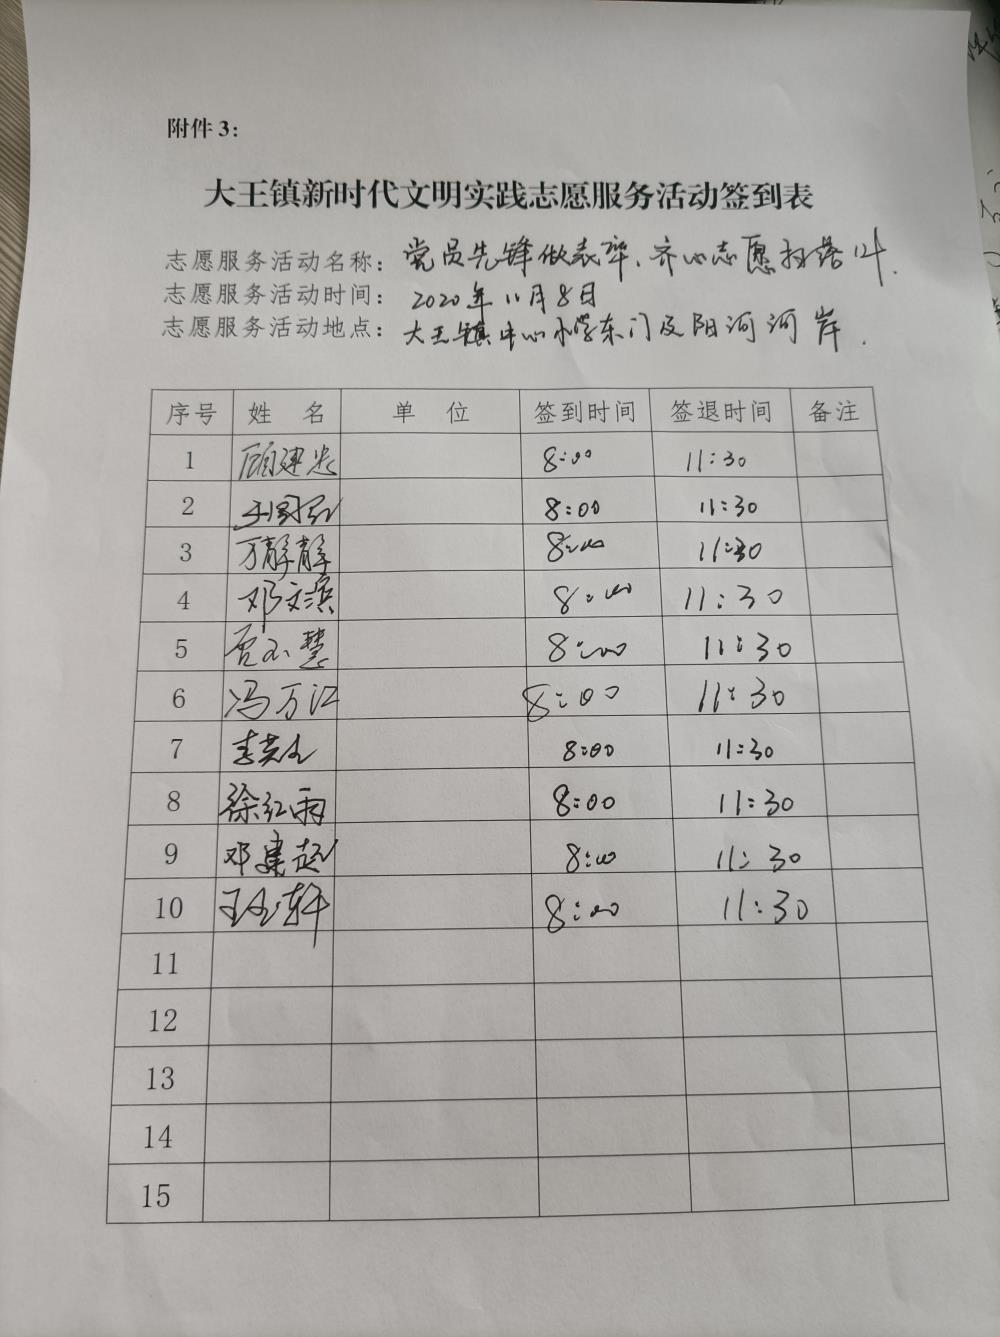 附件3：
大王镇新时代文明实践志愿服务活动签到表
志愿服务活动名称：党员先锋做表率、齐心志愿扫落叶.
志愿服务活动时间：2020年11月8日
志愿服务活动地点：大王镇中心小学东门及阳河河岸.
序号 姓 名 单 位 签到时间 签退时间 备注
1 顾建忠 8:00 11:30
2 8:00 11:30
3 万静静 8:00 11:30
4 邓文滨 8:00 11:30
5 8:00 11:30
6 冯万江 8:00 11:30
7 8:00 11:30
8 徐红雨 8:00 11:30
9 邓建超 8:00 11:30
10 8:00 11:30
11
12
13
14
15